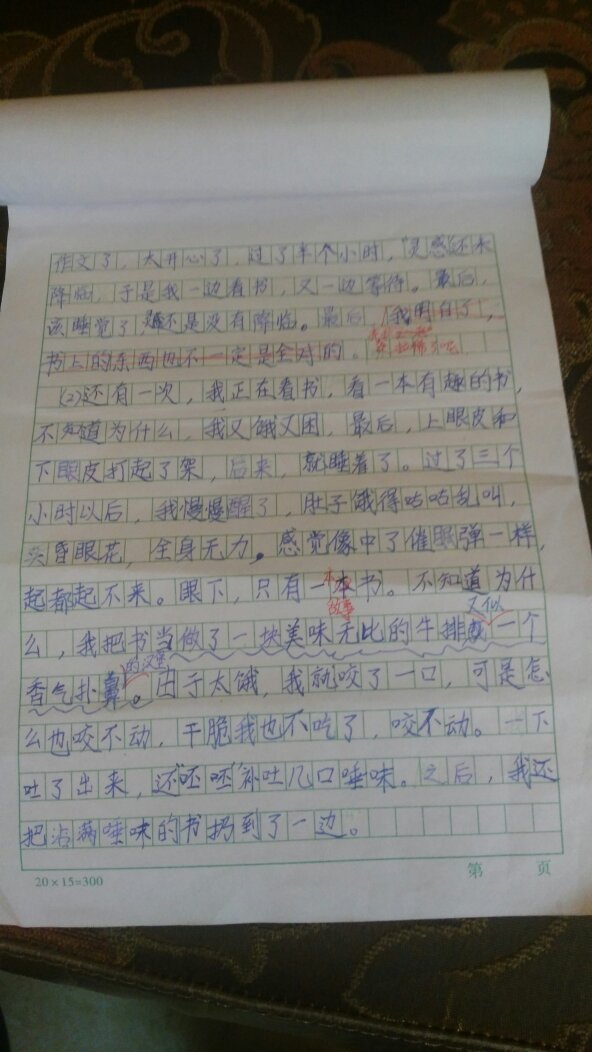 作文了，太开心了，过了半个小时，"灵感"还未
降临，于是我一边看书，又一边等待。最后，
该睡觉了，还是没有降临。最后，我明白了，
书上的东西也不一定是全对的。
⑵还有一次，我正在看书，看一本有趣的书，
不知道为什么，我又饿又困，最后，上眼皮和
下眼皮打起了架，后来，就睡着了。过了三个
小时以后，我慢慢醒了，肚子饿得咕咕乱叫，
头昏眼花，全身无力。感觉像中了催眠弹一样，
起都起不来。眼下，只有一本书。不知道为什
故事
又似
么，我把书当做了一块美味无比的牛排或一个
的汉堡
香气扑鼻。由于太饿，我就咬了一口，可是怎
么也咬不动，干脆我也不吃了，咬不动。一下
吐了出来，还"呸呸"补吐几口唾味。之后，我还
把沾满唾味的书扔到了一边。
20×15=300
第 页